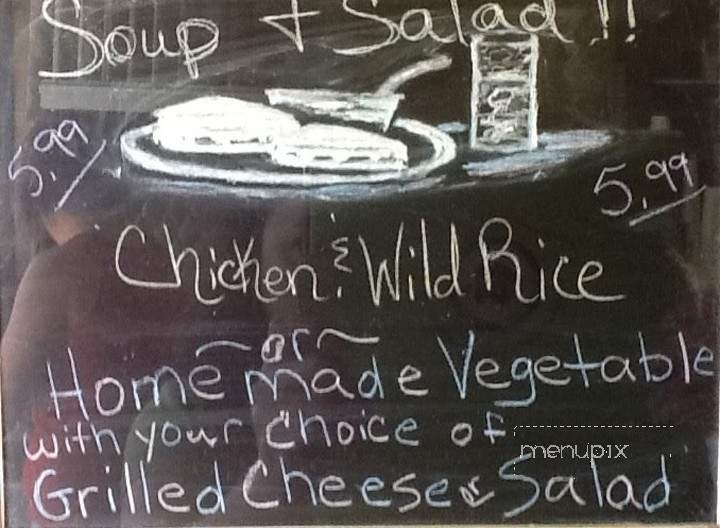 Soup + Salad!!
5.99
5.99
Chicken & Wild Rice
~or~
Homemade Vegetable
with your choice of
menupix
Grilled Cheese or Salad